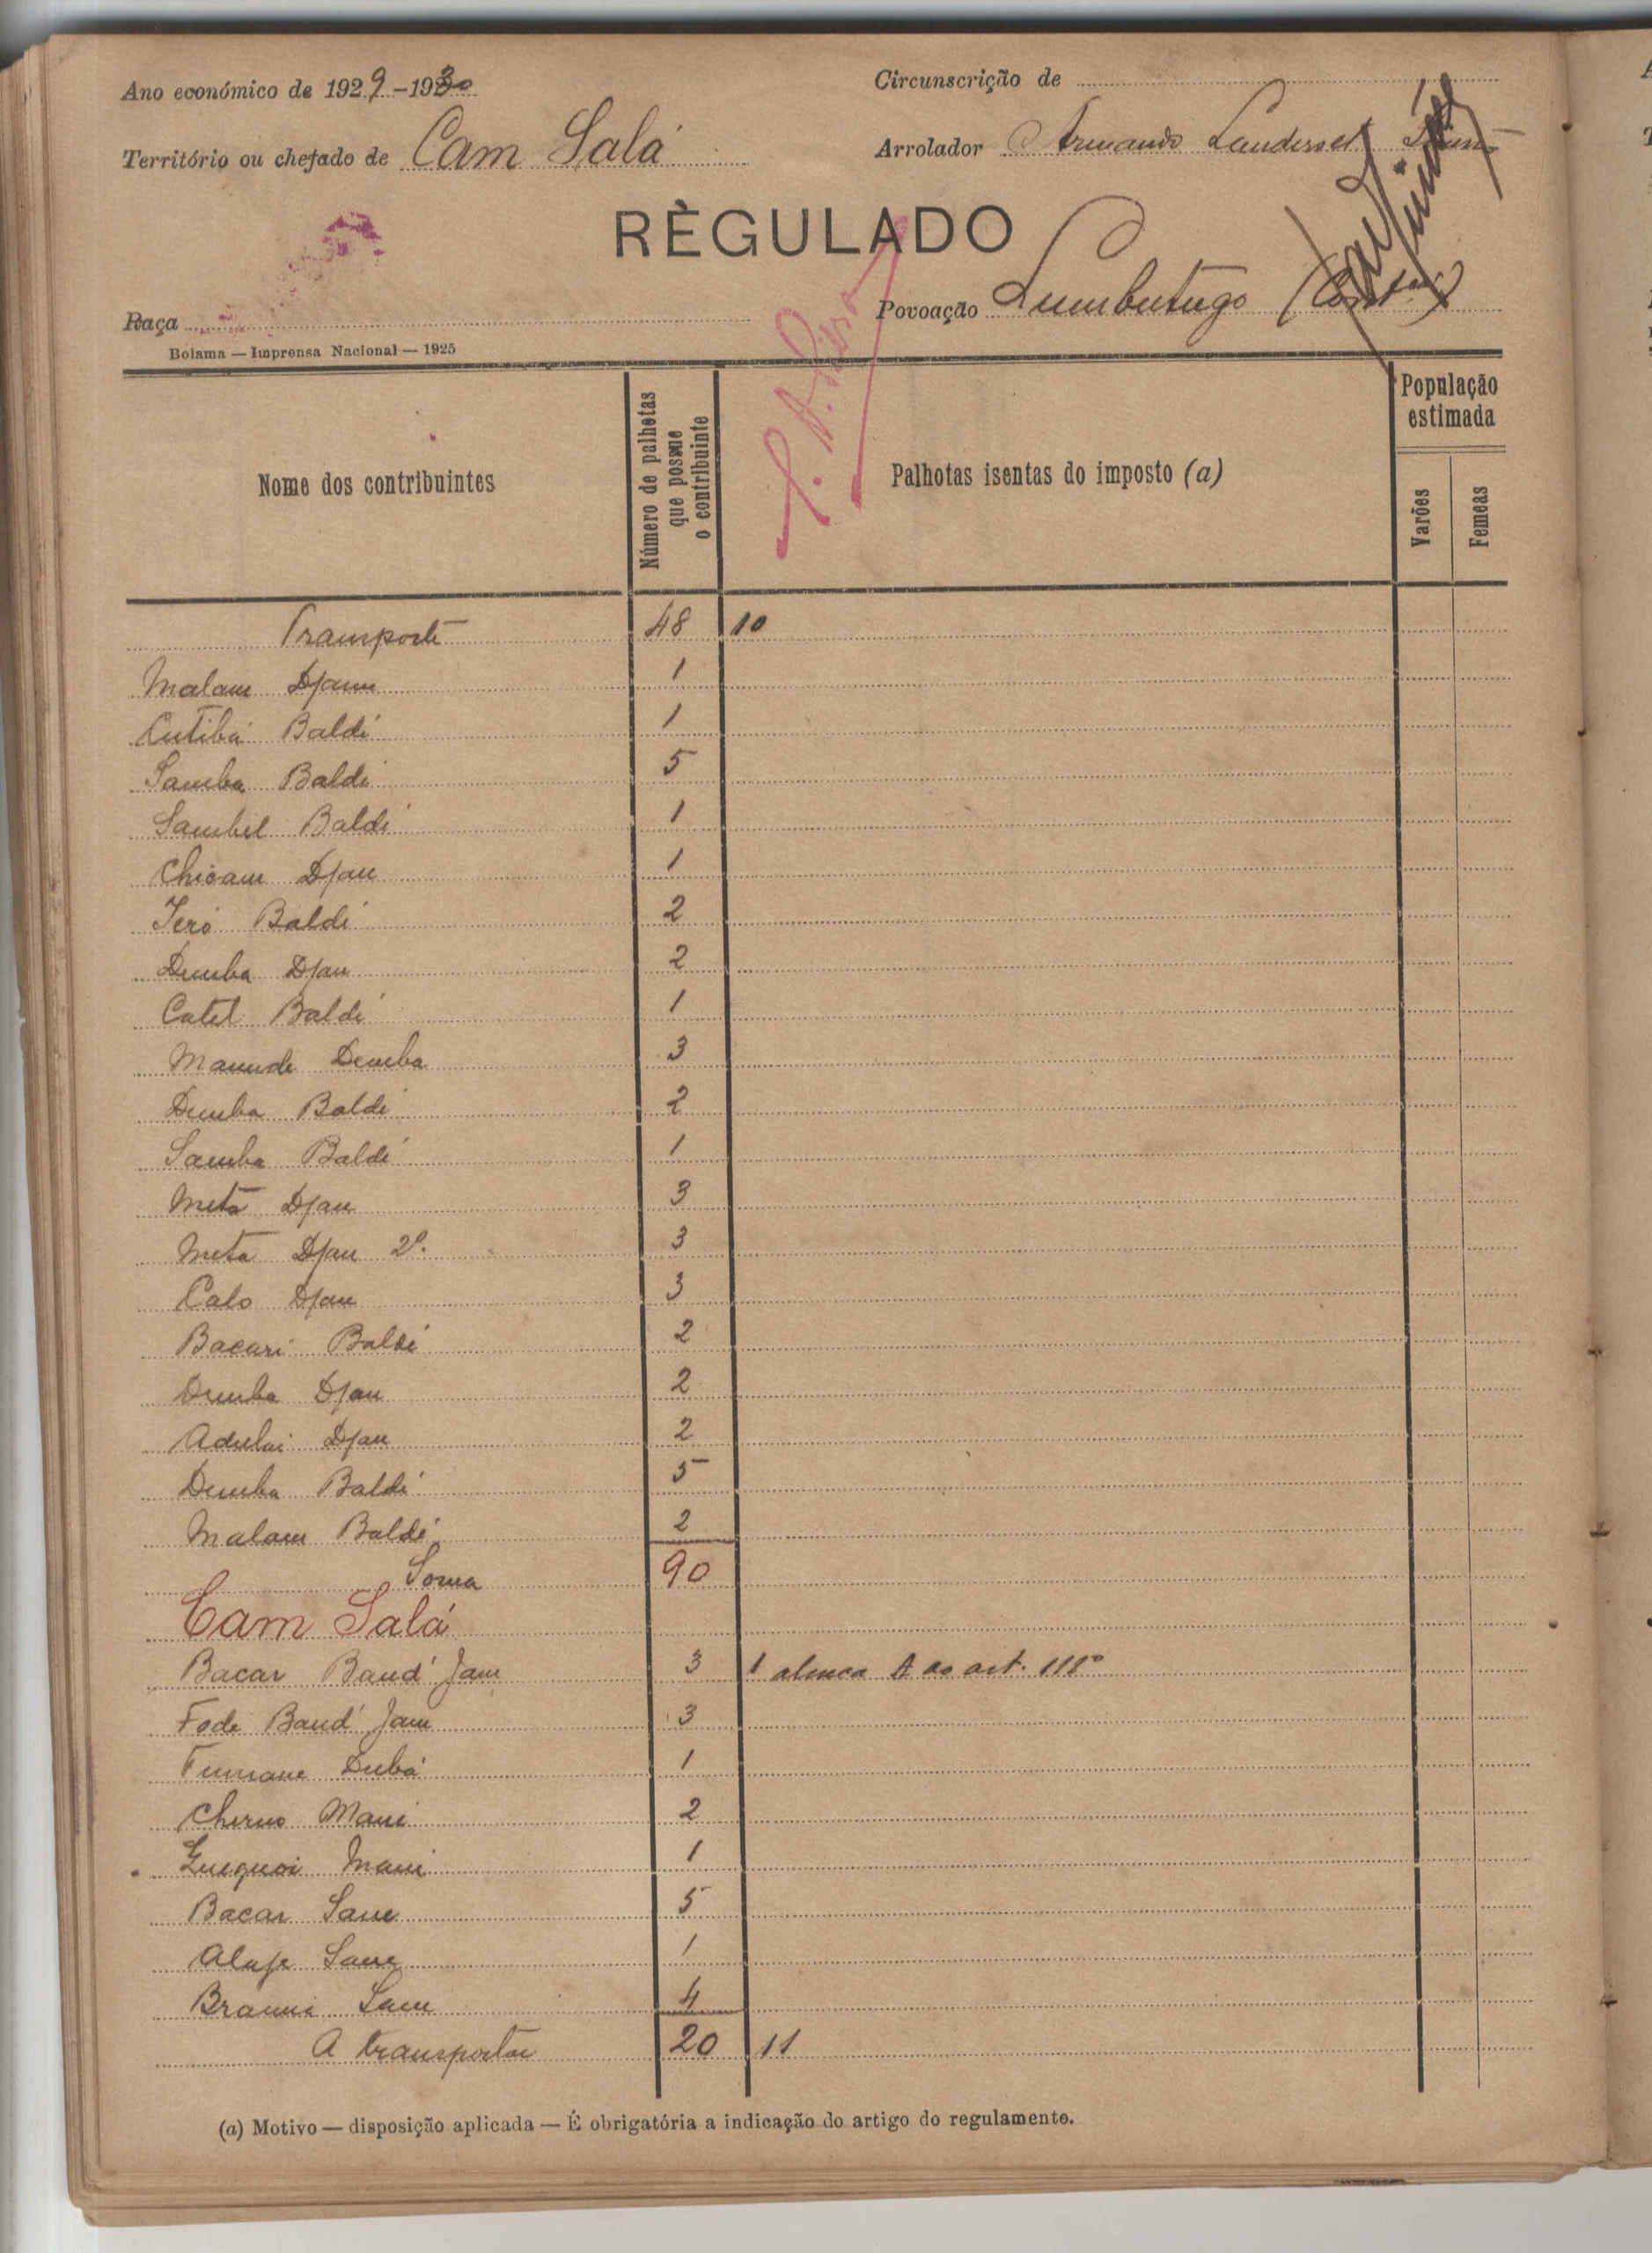 Ano económico de 1929-1930
Circunscrição de
Território ou chefado de Cam Salá
Arrolador Armando Landerset
RÈGULADO
Raça
Povoação Lumbutugo (Cont.)
Bolama — Imprensa Nacional — 1925
Nome dos contribuintes
Número de palhotas que possue o contribuinte
Palhotas isentas do imposto (a)
População estimada
Varões
Femeas
Transporte 48 10
Malam Djam 1
Cutibá Baldé 1
Samba Baldé 5
Sambel Baldé 1
Chicam Djau 1
Iero Baldé 2
Demba Djau 2
Catel Baldé 1
Mamude Demba 3
Demba Baldé 2
Samba Baldé 1
Meta Djau 3
Meta Djau 2º. 3
Calo Djau 3
Bacari Baldé 2
Demba Djau 2
Adulai Djau 2
Demba Baldé 5
Malam Baldé 2
Soma 90
Cam Salá
Bacar Band' Jam 3 1 alinea A ao art. 111º
Fode Band' Jam 3
Fumane Dubá 1
Cherno Mané 2
Mané 1
Bacar Sane 5
Alaje Sane 1
Braima Sane 4
A transportar 20 11
(a) Motivo — disposição aplicada — É obrigatória a indicação do artigo do regulamento.